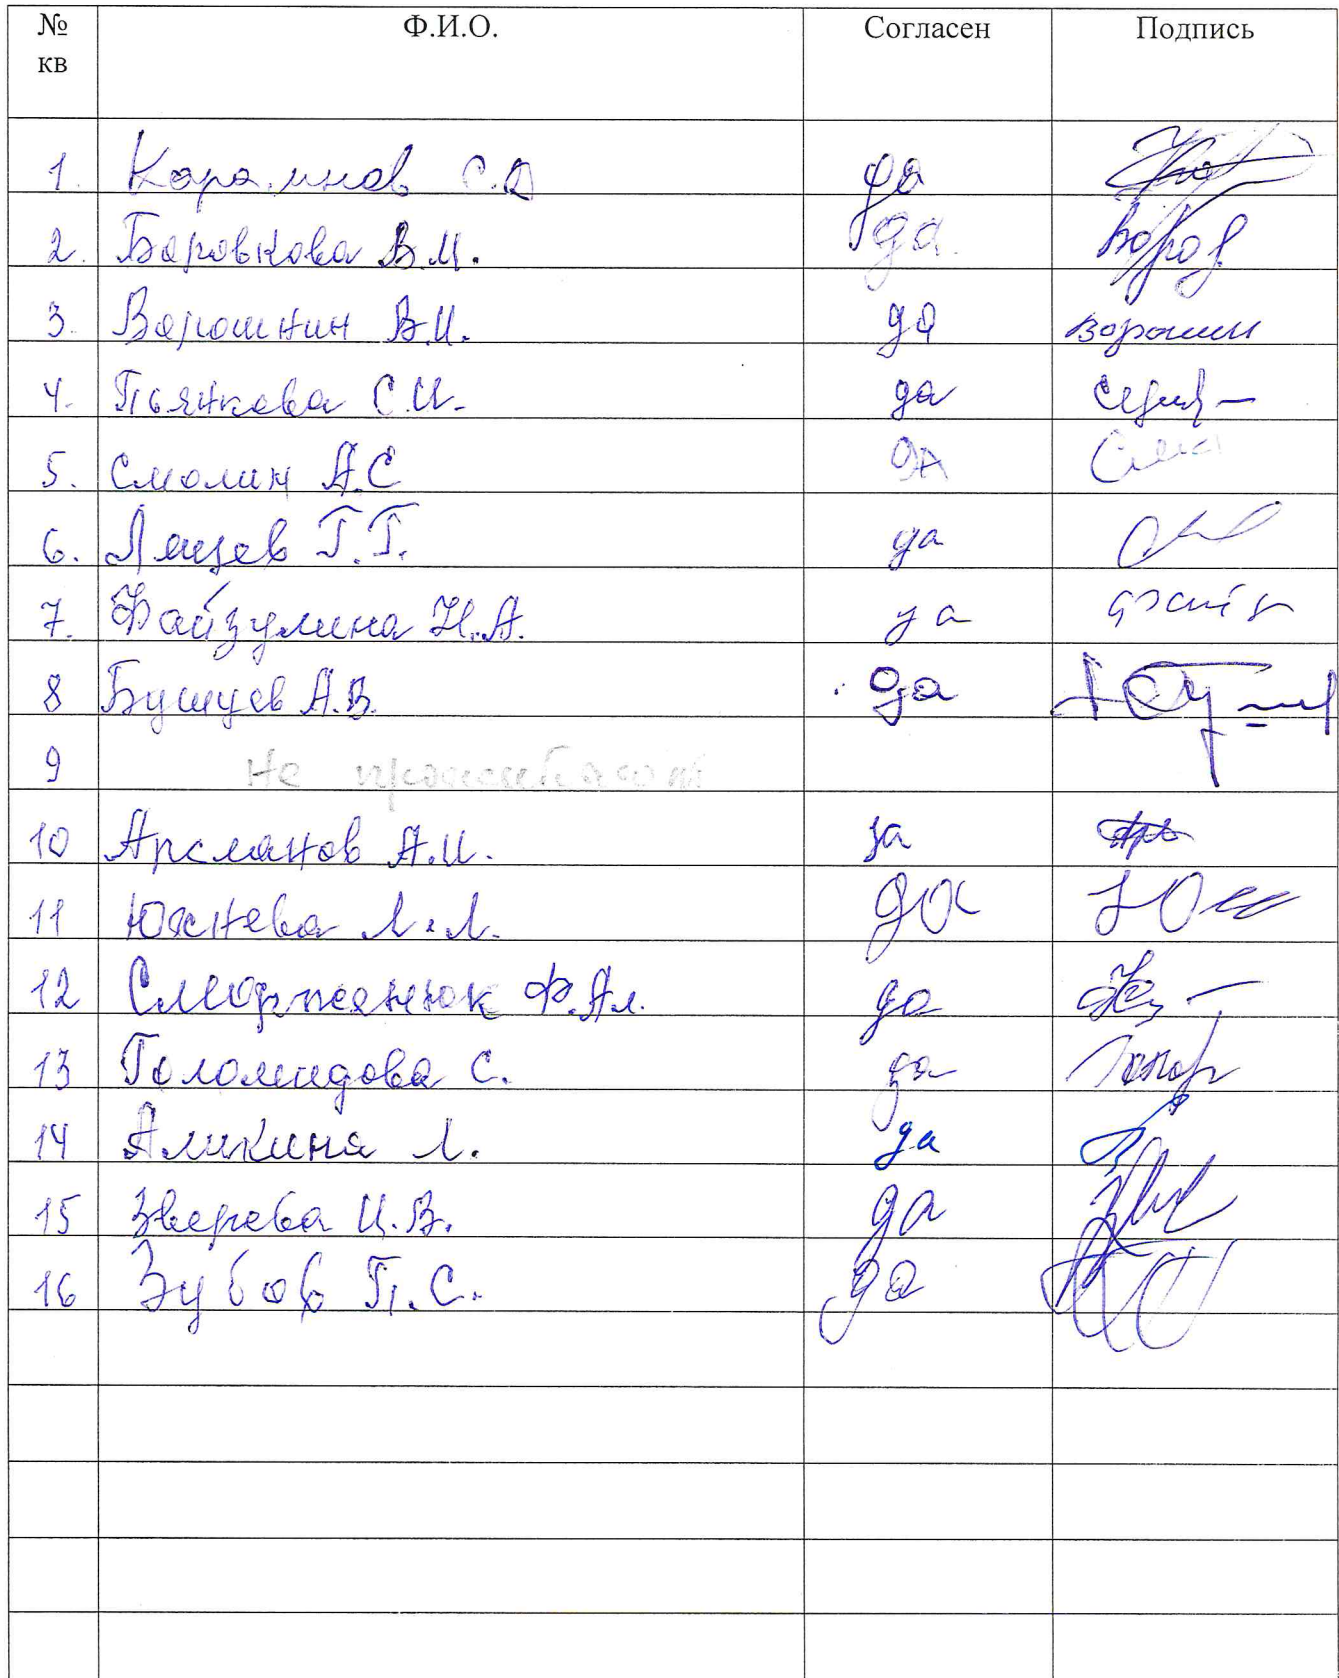 № кв Ф.И.О. Согласен Подпись
1. С.Д да
2. Боровкова В.И. да.
3. Ворошнин В.И. да
4. Пьянкова С.И. да
5. Смолин А.С да
6. Г.Г. да
7. Файзулина Н.А. да
8 Бушуев А.В. да
9 Не проживают
10 Арсланов А.И. за
11 Южнева Л.Л. да
12 Ф.Ал. да
13 Голомидова С. да
14 Аликина Л. да
15 Зверева И.В. да
16 Зубов П.С. да